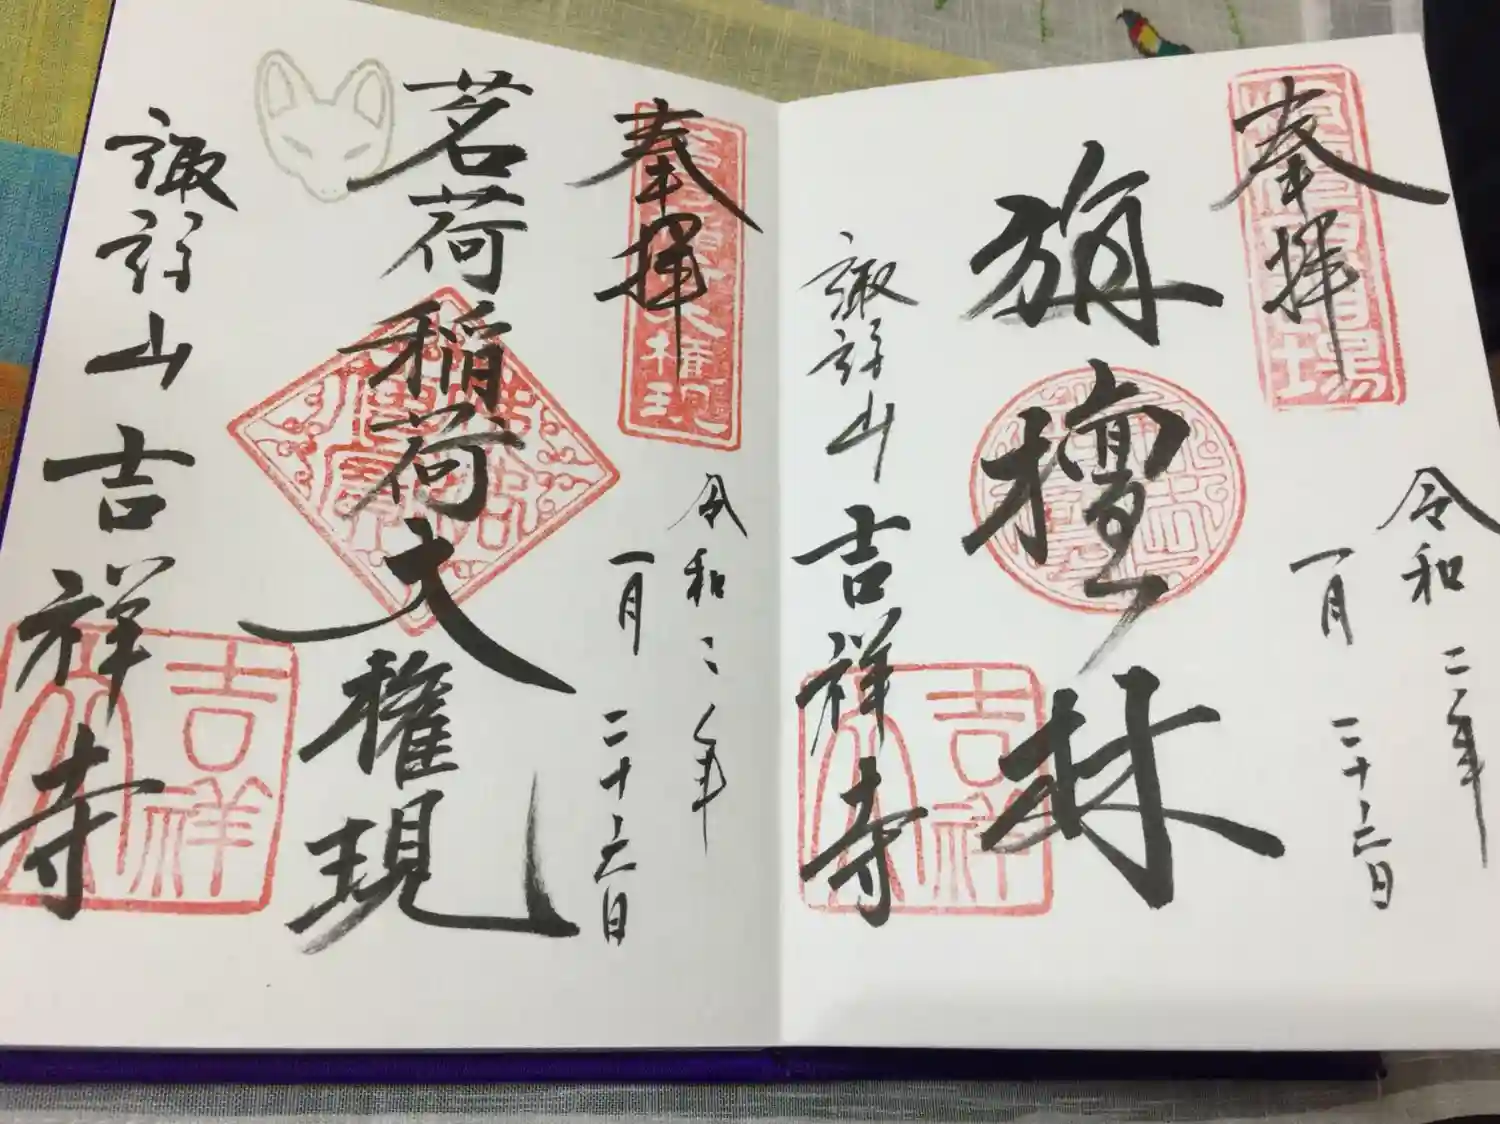 奉拝
令和二年
一月二十六日
旃檀林
諏訪山 吉祥寺
吉祥
奉拝
権現
令和二年
一月二十六日
茗荷稲荷大権現
諏訪山 吉祥寺
吉祥